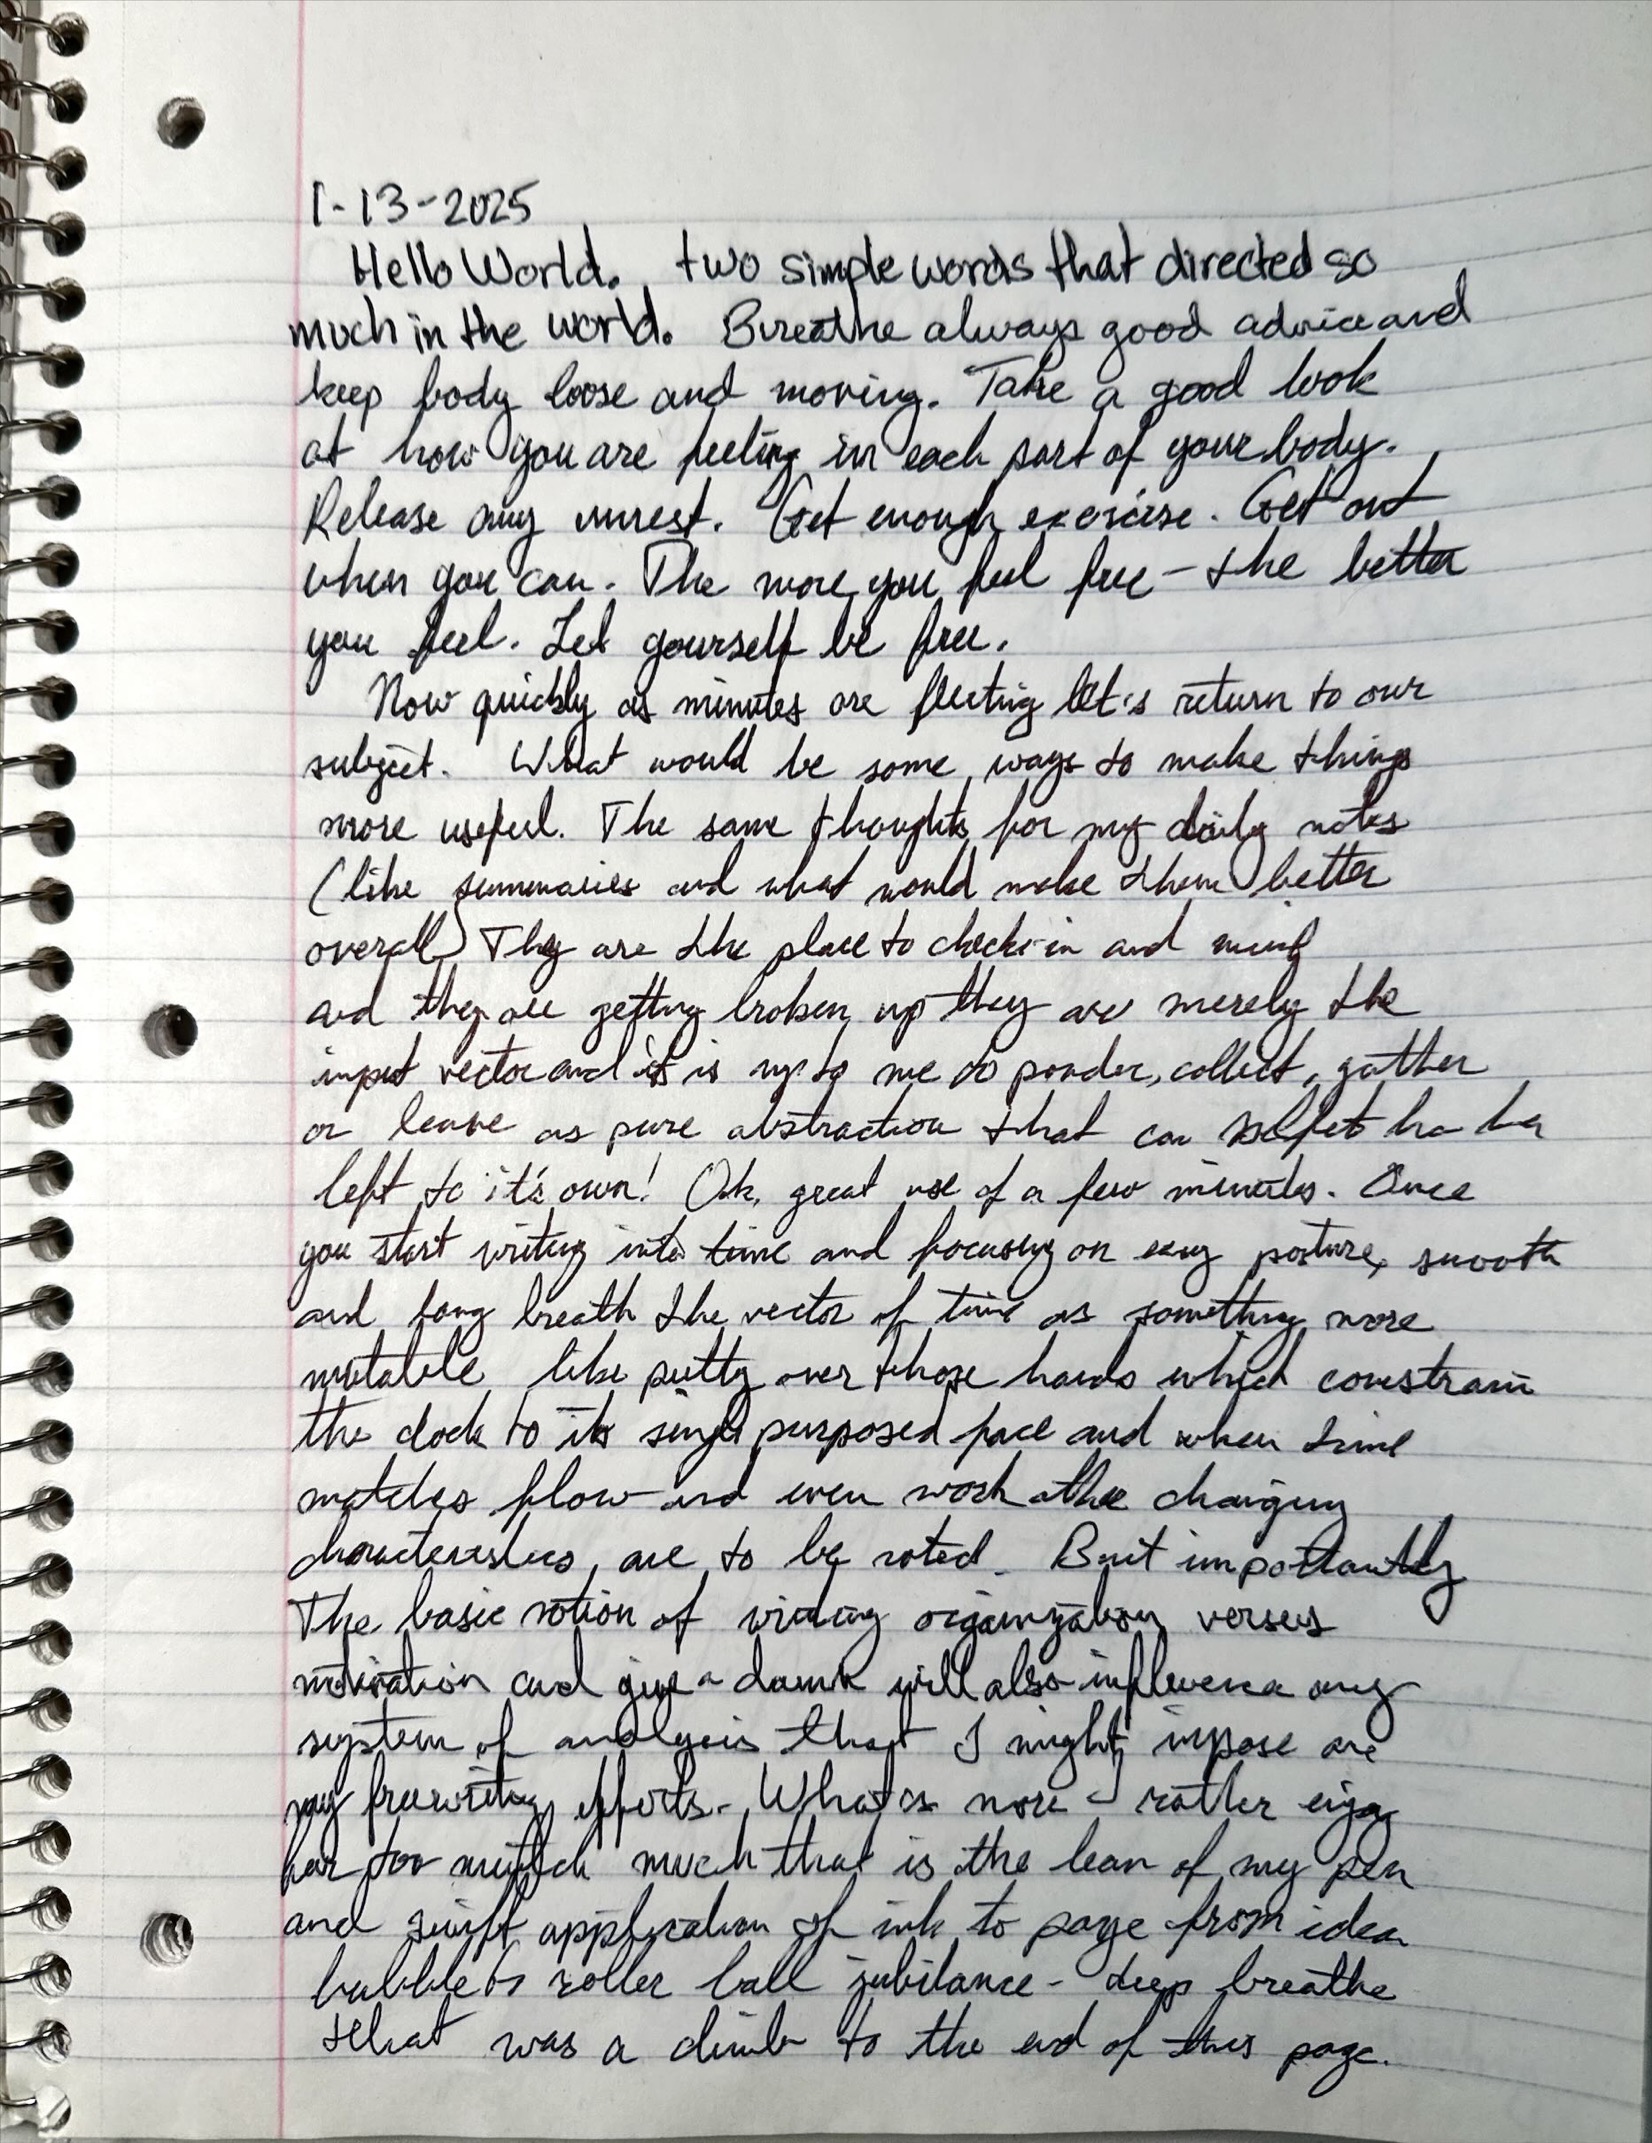 1-13-2025
Hello World. two simple words that directed so
much in the world. Breathe always good advice and
keep body loose and moving. Take a good look
at how you are feeling in each part of your body.
Release any unrest. Get enough exercise. Get out
when you can. The more you feel free - the better
you feel. Let yourself be free.
Now quickly as minutes are fleeting let's return to our
subject. What would be some ways to make things
more useful. The same thoughts for my daily notes
(like summaries and what would make them better
overall) They are the place to check-in and
and they are getting broken up they are merely the
input vector and it is up to me to ponder, collect, gather
or leave as pure abstraction that can
left to it's own! Ok, great use of a few minutes. Once
you start writing into time and focusing on easy posture, smooth
and long breath the vector of time as something more
mutable like putty over those hands which constrain
the clock to its single purposed pace and when time
matches flow and even work the changing
characteristics, are to be noted. But importantly
The basic notion of writing organization versus
motivation and give a damn will also influence any
system of analysis that I might impose
my freewriting efforts. What's more I rather
far too much that is the lean of my pen
and swift application of ink to page from idea
bubble to roller ball jubilance - deep breathe
that was a climb to the end of this page.